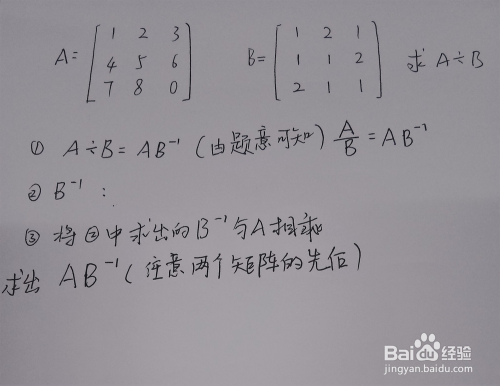 A= [ 1 2 3 B= [ 1 2 1 求 A÷B
4 5 6 1 1 2
7 8 0 ] 2 1 1 ]
① A÷B = AB⁻¹ (由题意可知) A/B = AB⁻¹
② B⁻¹ :
③ 将②中求出的B⁻¹与A相乘
求出 AB⁻¹ (注意两个矩阵的先后)
Baidu经验
jingyan.baidu.com